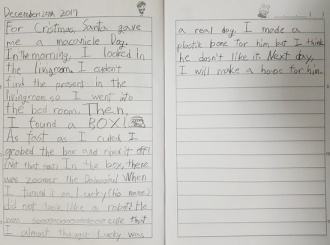 December 24th, 2017
For Cristmas, Santa gave
me a macanicle Dog.
In the morning, I looked in
the livingroom. I cudent
find the present in the
livingroom so I went into
the bed room. Then,
I found a BOX!
As fast as I culed I
grabed the box and riped it off!
(Not that fast) In the box, there
was zoomer the Dalmatian! When
I turned it on, Lucky (his name)
did not look like a robot! He
was soooooooooooo cute that
I almost thougt Lucky was
a real dog. I made a
plastik bone for him but I think
he dosn't like it. Next day,
I will make a house for him.